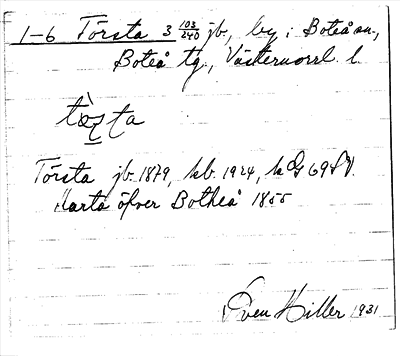 1-6 Törsta 3 103/240 jb, by i Boteå sn,
Boteå tg., Västernorrl. l.
tœ̀ṣṭa
Törsta jb. 1879, kb. 1924, kG 69 SV.
Karta öfver Botheå 1855
Sven Hiller 1931